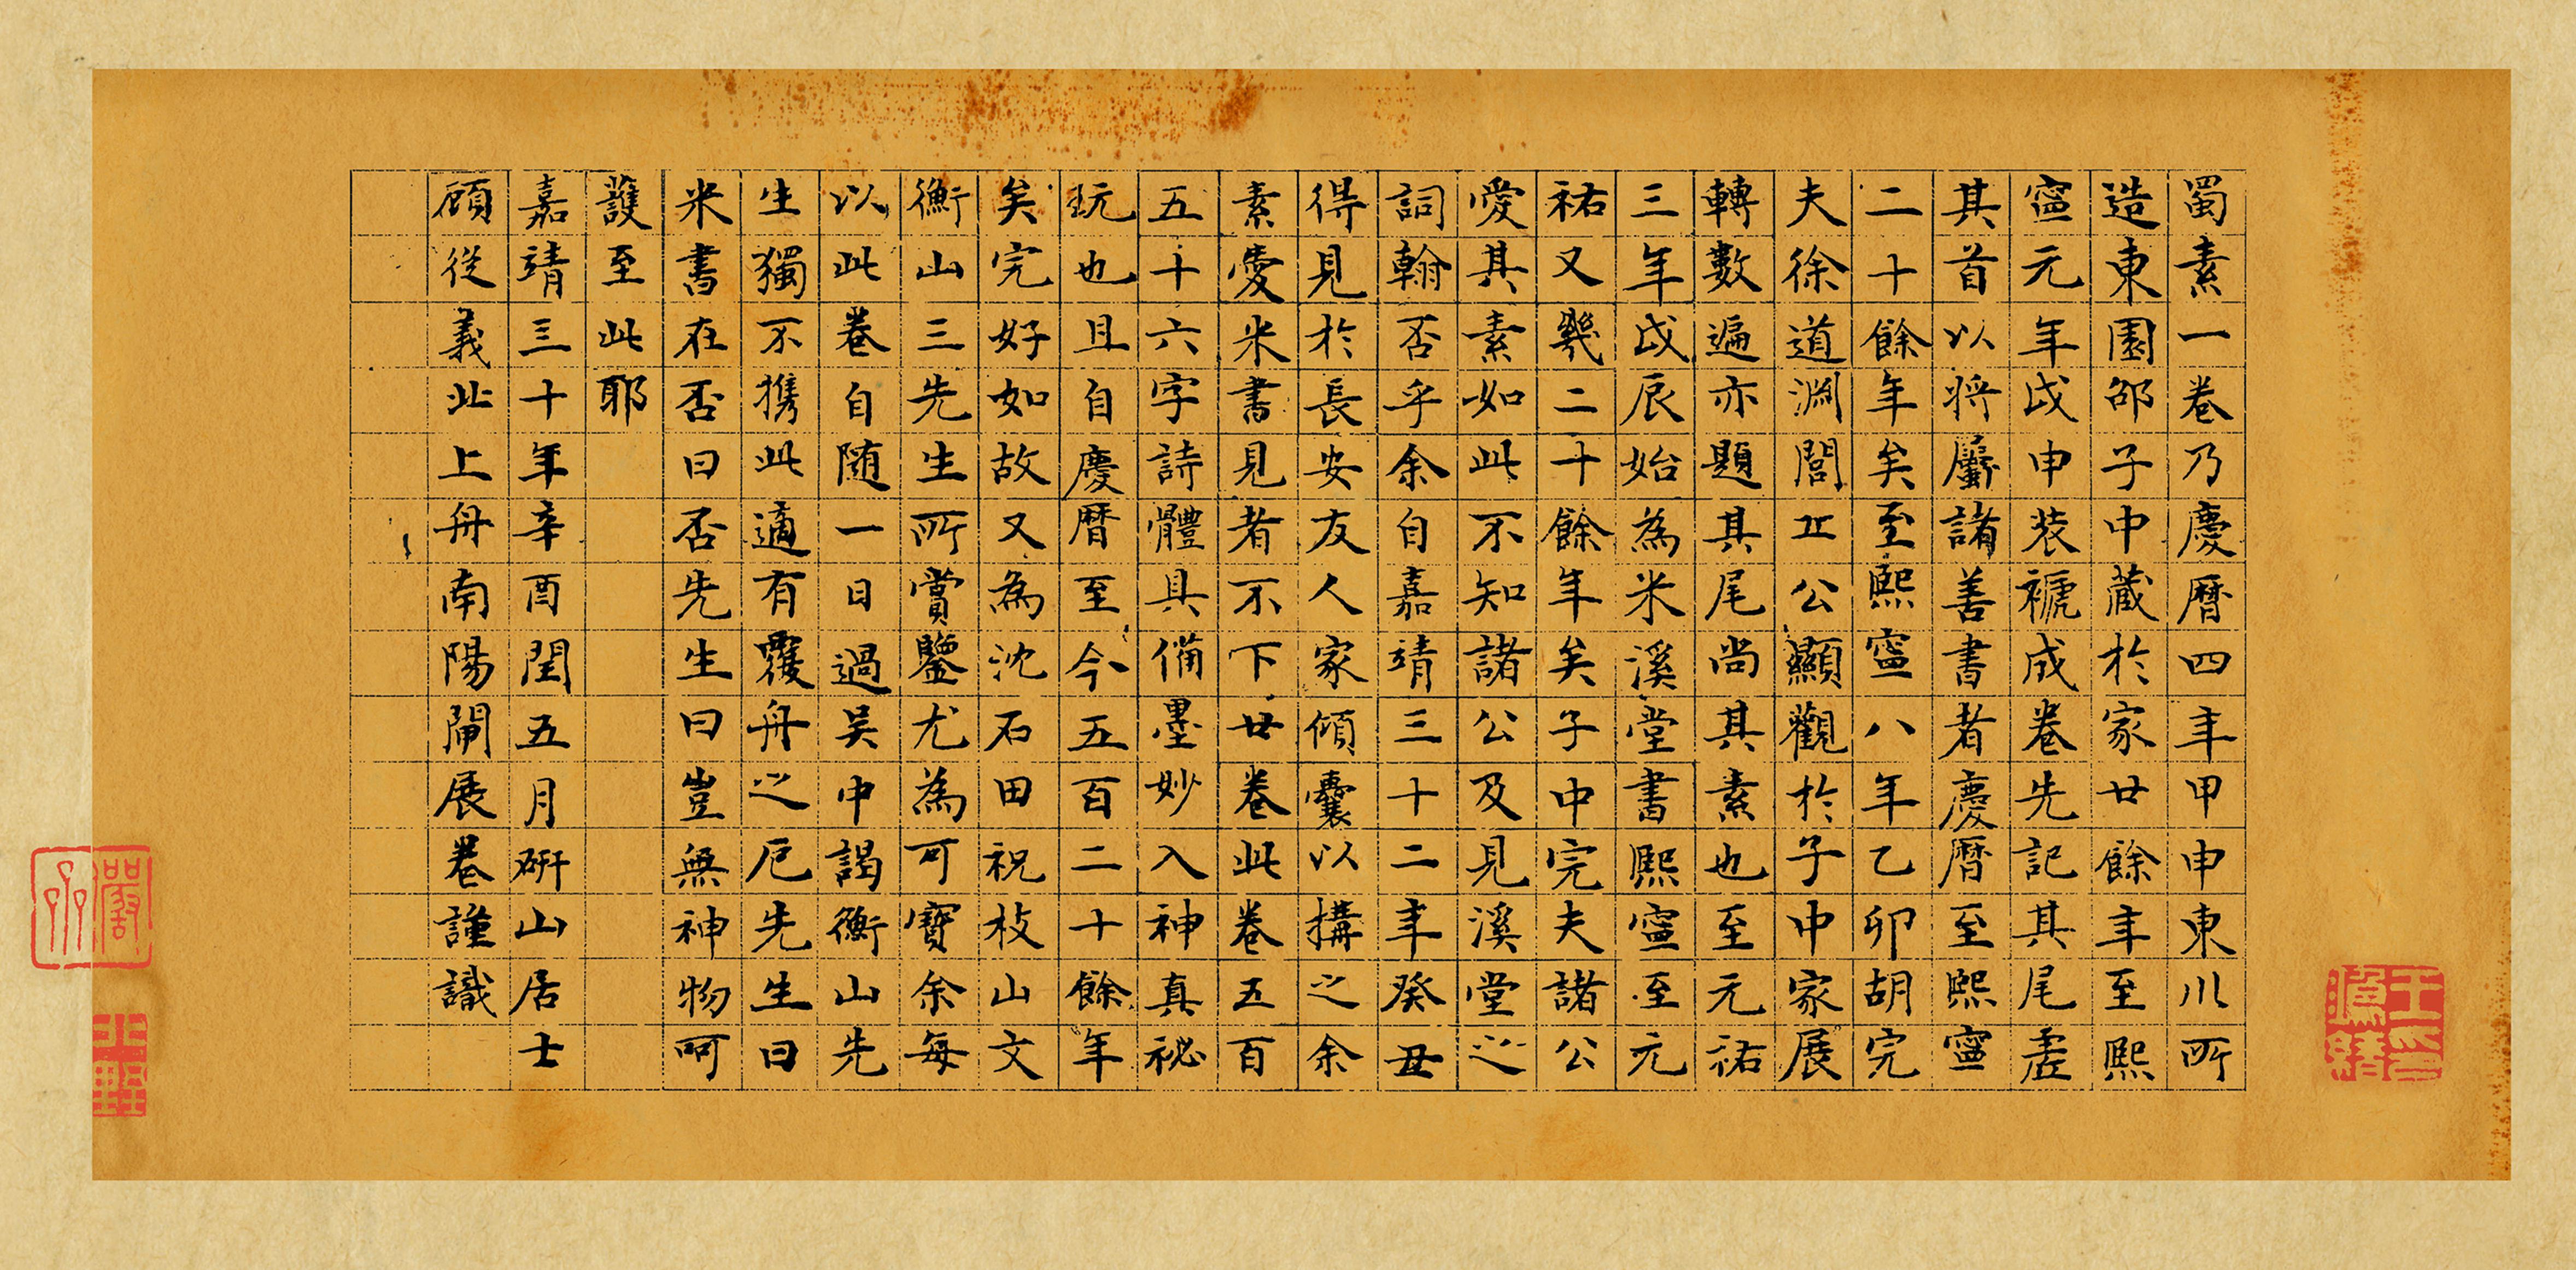 蜀素一卷乃慶曆四年甲申東川所
造東園邵子中蔵於家廿餘年至熙
寧元年戊申裝褫成卷先記其尾虗
其首以將屬諸善書者慶曆至熙寧
二十餘年矣至熙寧八年乙卯胡完
夫徐道淵閭丘公顯觀於子中家展
轉數遍亦題其尾尚其素也至元祐
三年戊辰始為米溪堂書熙寧至元
祐又幾二十餘年矣子中完夫諸公
愛其素如此不知諸公及見溪堂之
詞翰否乎余自嘉靖三十二年癸丑
得見於長安友人家傾囊以搆之余
素愛米書見者不下廿卷此卷五百
五十六字詩體具備墨妙入神真祕
玩也且自慶曆至今五百二十餘年
矣完好如故又為沈石田祝枝山文
衡山三先生所賞鑒尤為可寶余每
以此卷自随一日過吴中謁衡山先
生獨不攜此適有覆舟之厄先生曰
米書在否曰否先生曰豈無神物呵
護至此耶
嘉靖三十年辛酉閏五月研山居士
顧從義北上舟南陽閘展卷謹識